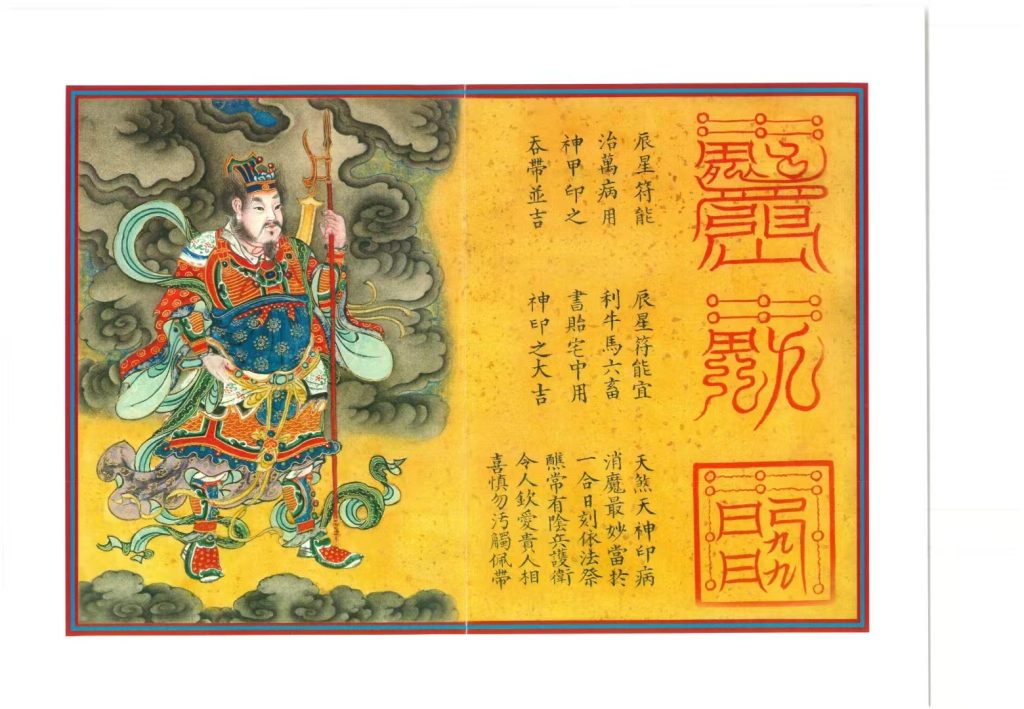 辰星符能
治萬病用
神甲印之
吞帶並吉
辰星符能宜
利牛馬六畜
書貼宅中用
神印之大吉
天煞天神印病
消魔最妙當於
一合日刻依法祭
醮常有陰兵護衛
令人欽愛貴人相
喜慎勿污觸佩帶